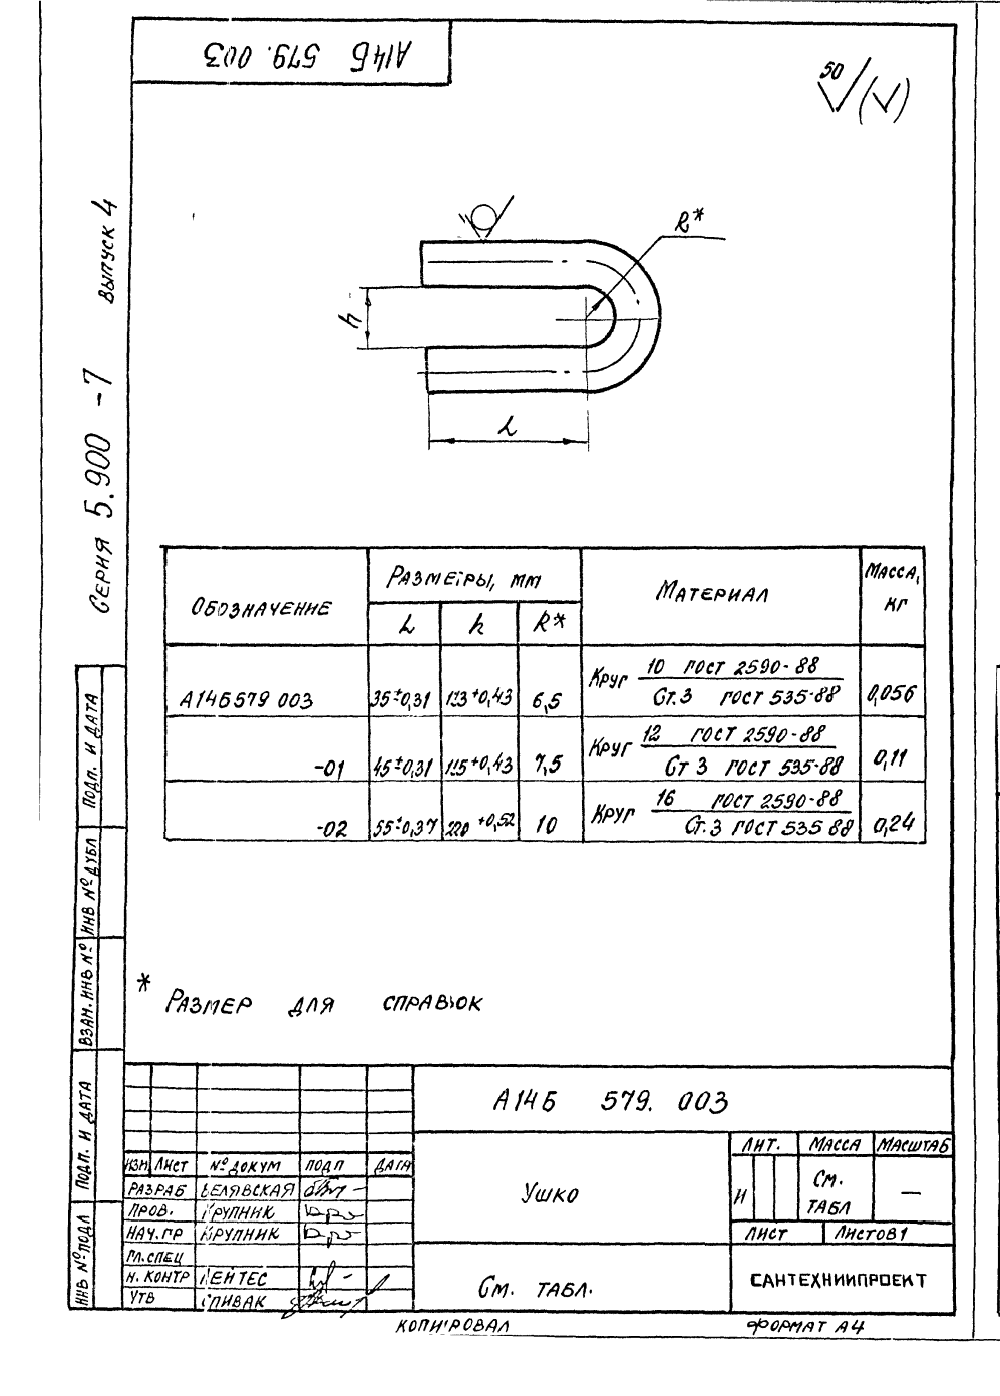 А14Б 579. 003
50
Серия 5.900 -7 выпуск 4
R*
h
L
Обозначение
Размеры, мм
Материал
Масса, кг
L h R*
А14Б579 003 35±0,31 13+0,43 6,5 Круг 10 ГОСТ 2590-88 Ст.3 ГОСТ 535-88 0,056
-01 45±0,31 15+0,43 7,5 Круг 12 ГОСТ 2590-88 Ст 3 ГОСТ 535-88 0,11
-02 55±0,37 20 +0,52 10 Круг 16 ГОСТ 2590-88 Ст.3 ГОСТ 535 88 0,24
* Размер для справок
Подп. и дата
Инв № дубл
Взам. инв №
Подп. и дата
Инв № подл
А14Б 579. 003
Изм Лист № докум Подп Дата
Разраб Белявская
Пров. Крупник
Нач. гр Крупник
Гл. спец
Н. контр Лейтес
Утв Спивак
Ушко
См. табл.
Лит. Масса Масштаб
И См. табл —
Лист Листов 1
САНТЕХНИИПРОЕКТ
Копировал Формат А4